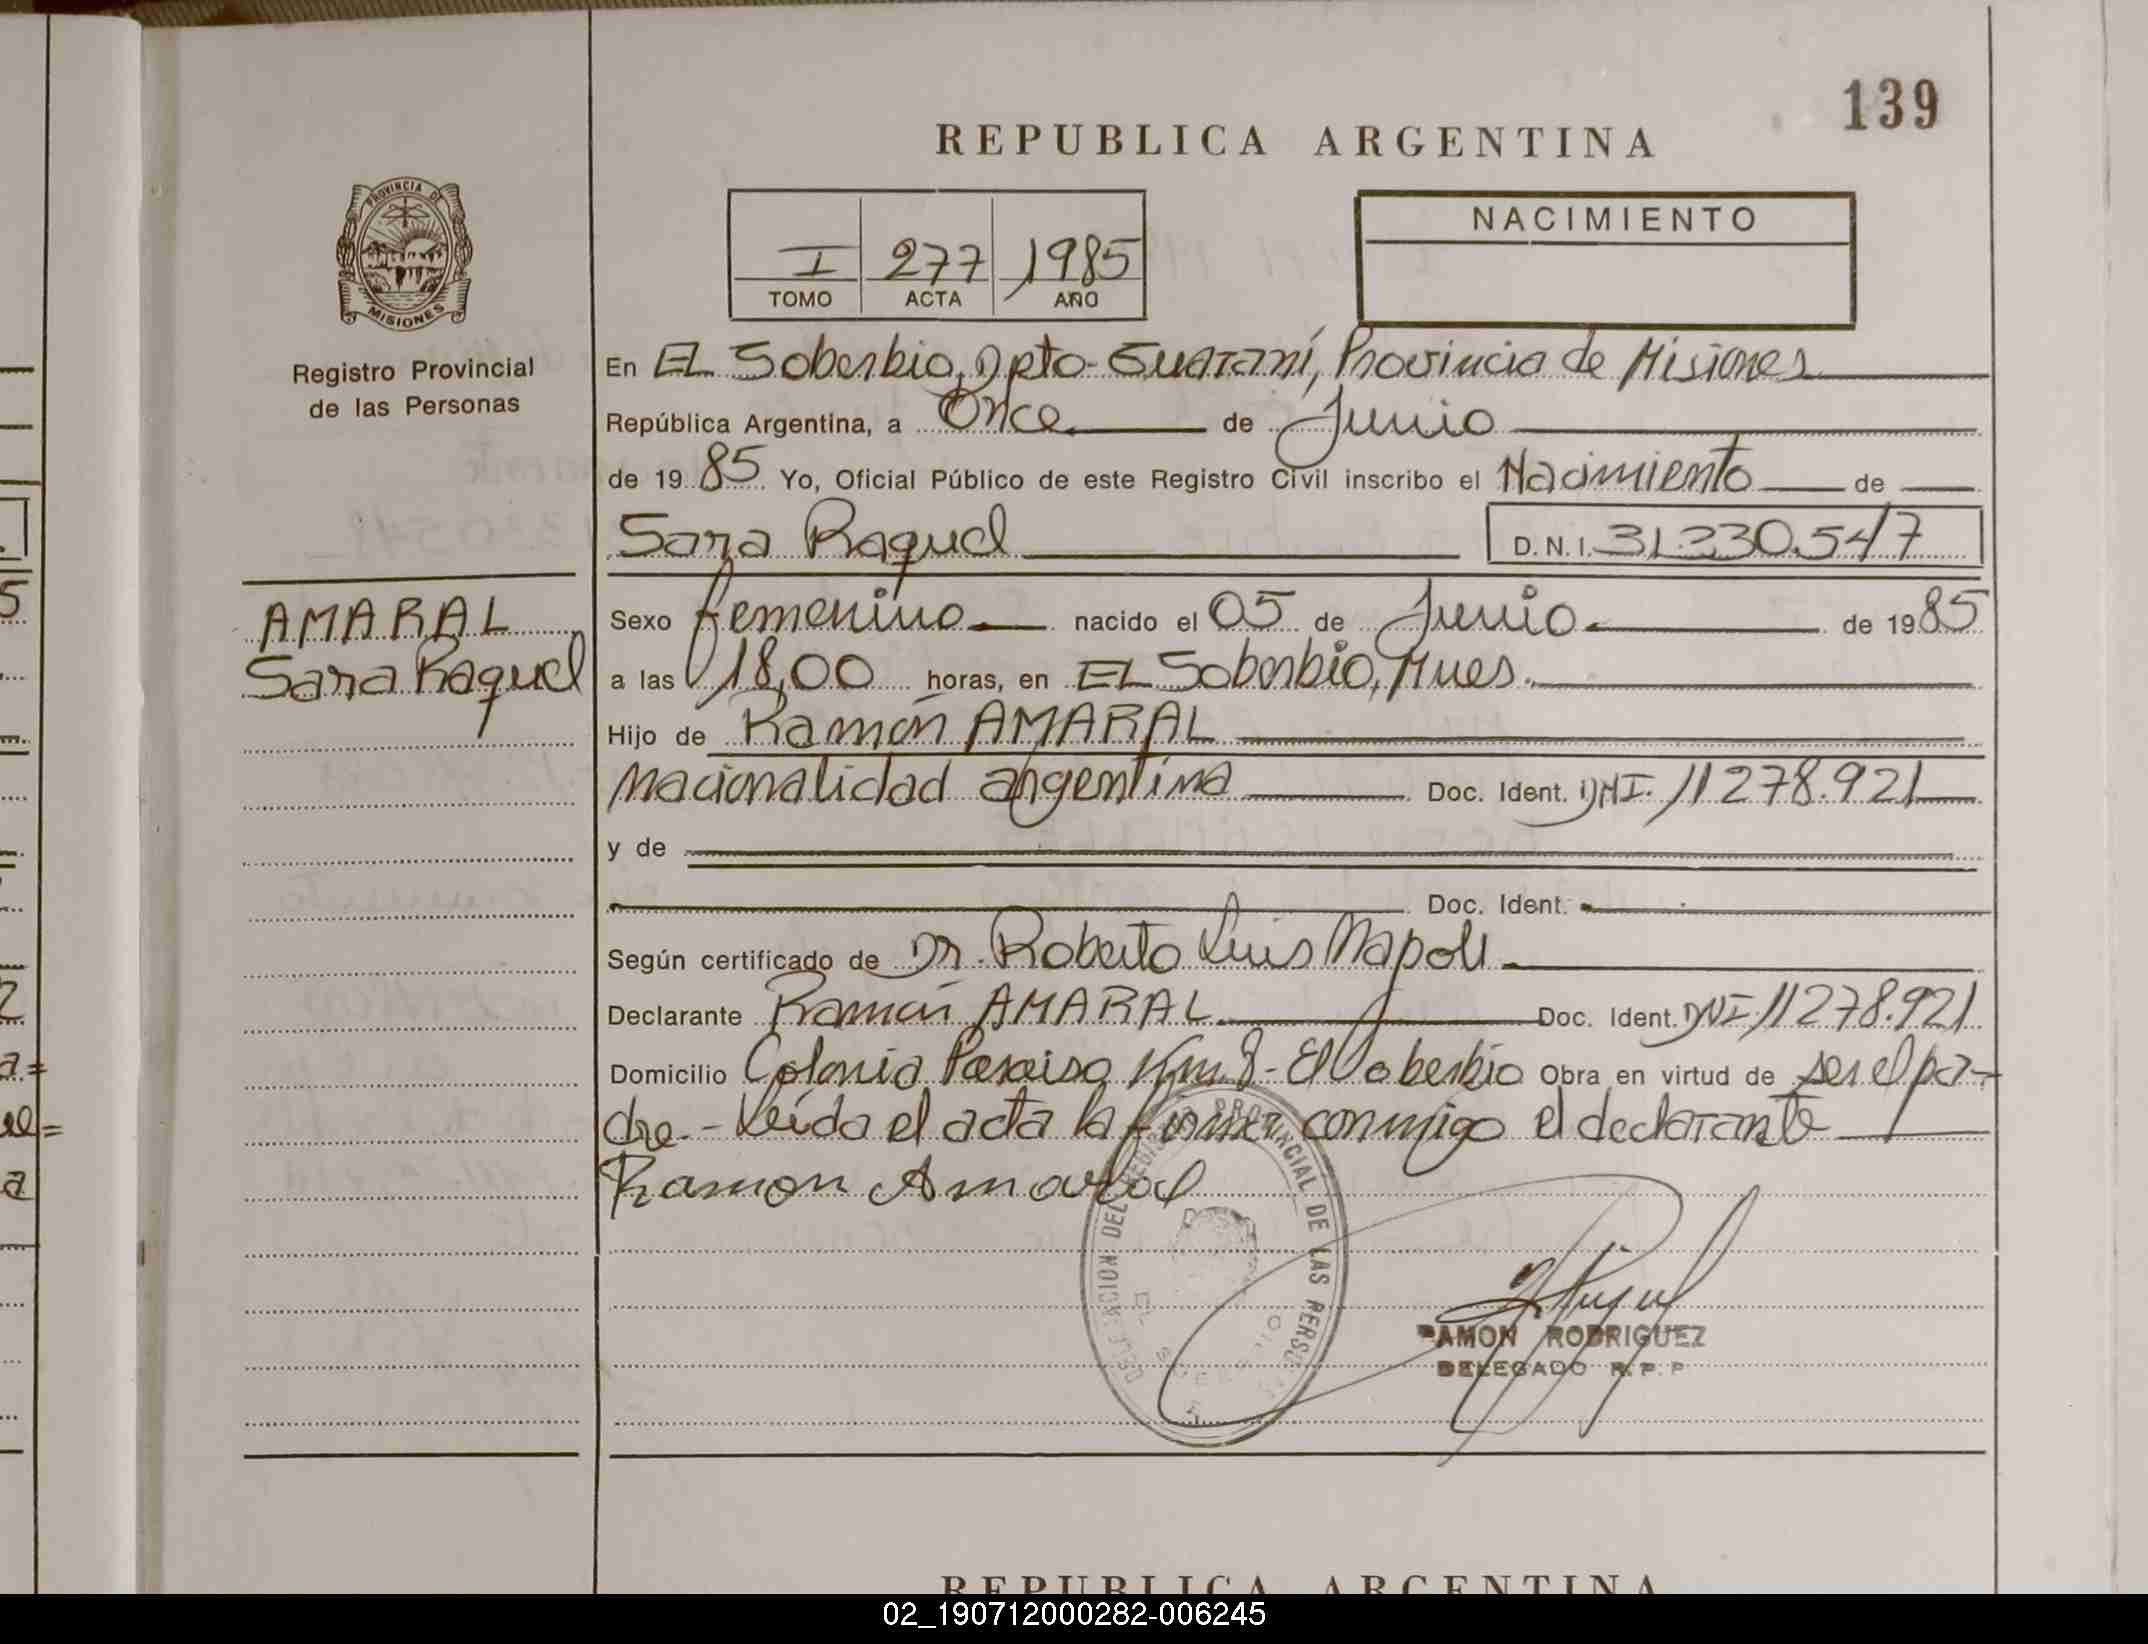 139
REPUBLICA ARGENTINA
PROVINCIA DE
MISIONES
Registro Provincial
de las Personas
I 277 1985
TOMO ACTA AÑO
NACIMIENTO
En EL Soberbio, Dpto-Guaraní, Provincia de Misiones
República Argentina, a Once de Junio
de 1985 Yo, Oficial Público de este Registro Civil inscribo el Nacimiento de
Sara Raquel D.N.I. 31.230.547
AMARAL
Sara Raquel
Sexo femenino nacido el 05 de Junio de 1985
a las 18,00 horas, en EL Soberbio, Mnes.
Hijo de Ramón AMARAL
nacionalidad argentina Doc. Ident. DNI. 11278.921
y de
Doc. Ident.
Según certificado de Dr. Roberto Luis Napoli
Declarante Ramón AMARAL Doc. Ident. DNI 11278.921
Domicilio Colonia Paraiso Km. 8 - El Soberbio Obra en virtud de ser el pa-
dre.- Leída el acta la firma conmigo el declarante
Ramon Amaral
DELEGACION DEL REGISTRO PROVINCIAL DE LAS PERSONAS
EL SOBERBIO
RAMON RODRIGUEZ
DELEGADO R.P.P
REPUBLICA ARGENTINA
02_190712000282-006245